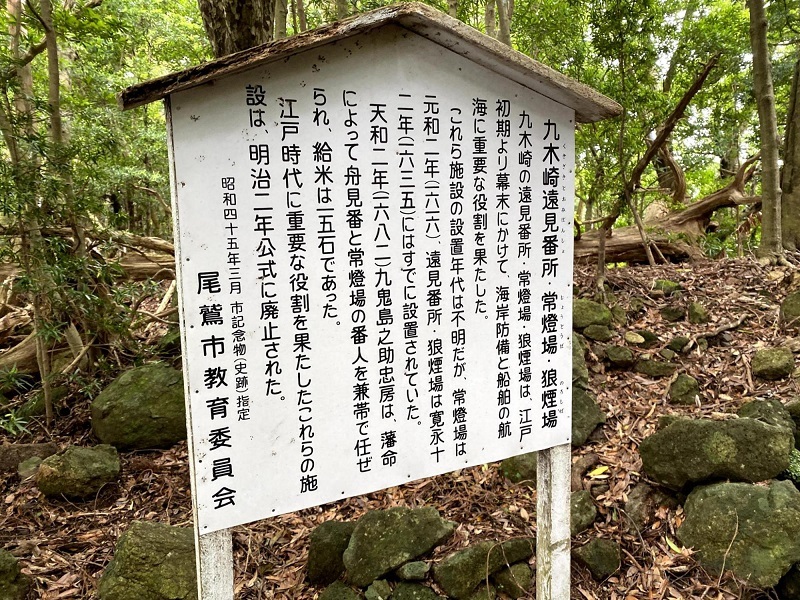 九木崎遠見番所・常燈場・狼煙場
九木崎の遠見番所・常燈場・狼煙場は、江戸
初期より幕末にかけて、海岸防備と船舶の航
海に重要な役割を果たした。
これら施設の設置年代は不明だが、常燈場は
元和二年(一六一六)、遠見番所・狼煙場は寛永十
二年(一六三五)にはすでに設置されていた。
天和二年(一六八二)九鬼島之助忠房は、藩命
によって舟見番と常燈場の番人を兼帯で任ぜ
られ、給米は一五石であった。
江戸時代に重要な役割を果たしたこれらの施
設は、明治二年公式に廃止された。
昭和四十五年三月 市記念物(史跡)指定
尾鷲市教育委員会